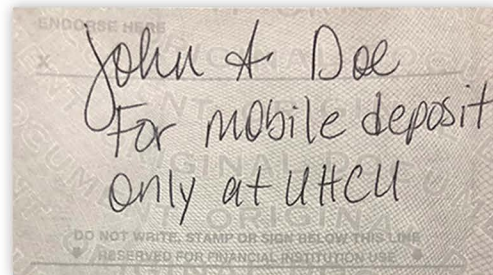 ENDORSE HERE
X John A Doe
For mobile deposit
only at UHCU
DO NOT WRITE, STAMP OR SIGN BELOW THIS LINE
RESERVED FOR FINANCIAL INSTITUTION USE